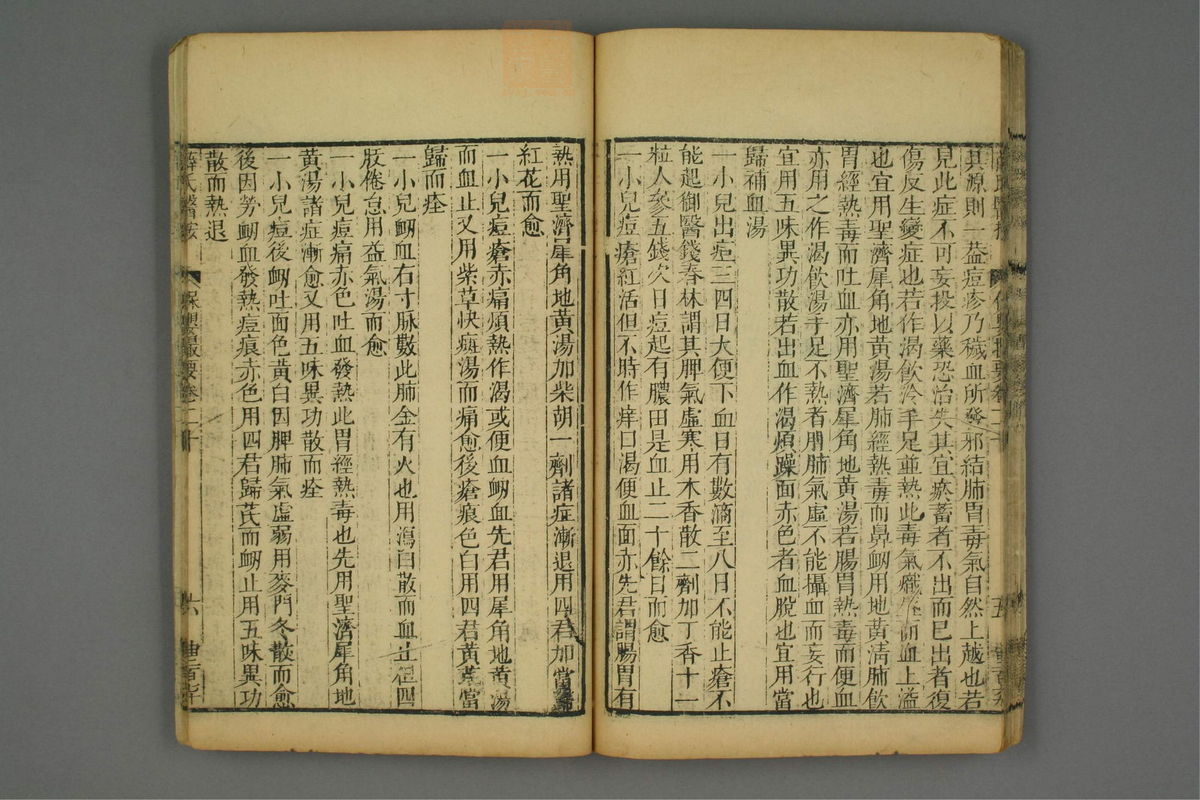 其源則一葢痘疹乃穢血所發邪結肺胃毒氣自然上越也若
見此症不可妄投以藥恐治失其宜瘀蓄者不出而已出者復
傷反生變症也若作渴飲冷手足並熱此毒氣熾盛而血上溢
也宜用聖濟犀角地黃湯若肺經熱毒而鼻衂用地黃清肺飲
胃經熱毒而吐血亦用聖濟犀角地黃湯若腸胃熱毒而便血
亦用之作渴飲湯手足不熱者脾肺氣虛不能攝血而妄行也
宜用五味異功散若出血作渴煩躁面赤色者血脫也宜用當
歸補血湯
一小兒出痘三四日大便下血日有數滴至八日不能止瘡不
能起御醫錢春林謂其脾氣虛寒用木香散二劑加丁香十一
粒人參五錢次日痘起有膿由是血止二十餘日而愈
一小兒痘瘡紅活但不時作痒口渴便血面赤先君謂腸胃有
熱用聖濟犀角地黃湯加柴胡一劑諸症漸退用四君加當歸
紅花而愈
一小兒痘瘡赤痛煩熱作渴或便血衂血先君用犀角地黃湯
而血止又用紫草快癍湯而痛愈後瘡痕色白用四君黃芪當
歸而痊
一小兒衂血右寸脉數此肺金有火也用瀉白散而血止但四
肢倦怠用益氣湯而愈
一小兒痘痛赤色吐血發熱此胃經熱毒也先用聖濟犀角地
黃湯諸症漸愈又用五味異功散而痊
一小兒痘後衂吐面色黃白因脾肺氣虛弱用麥門冬散而愈
後因勞衂血發熱痘痕赤色用四君歸芪而衂止用五味異功
散而熱退
薛氏醫按 保嬰撮要卷二十 六